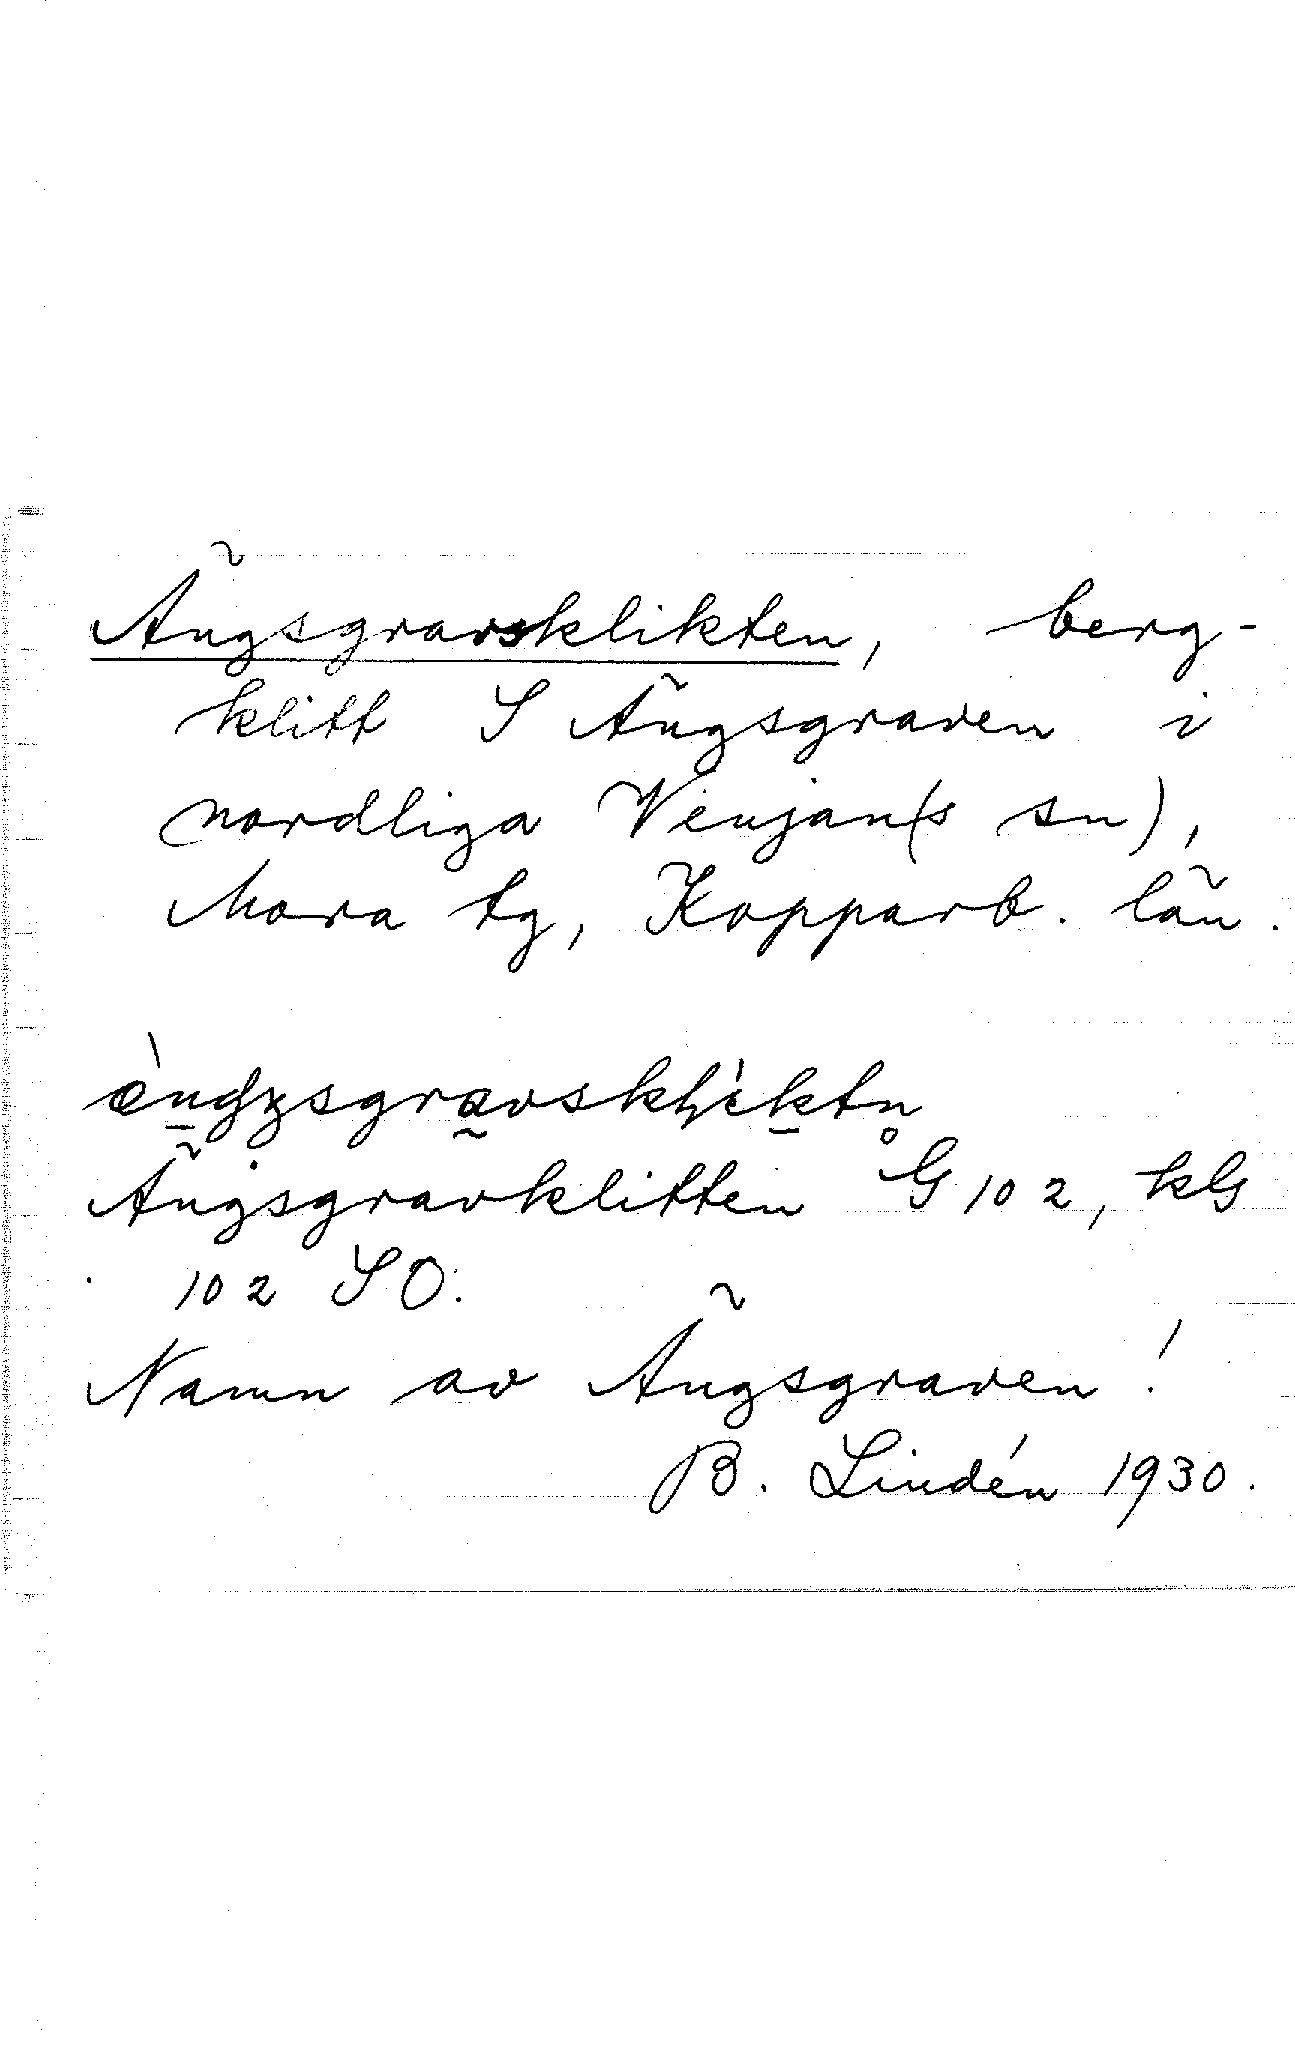 Ängsgravsklikten, berg-
klitt S Ängsgraven i
nordliga Venjan(s sn),
Mora tg, Kopparb. län.
Ängsgravklitten G 102, kG
102 SO.
Namn av Ängsgraven!
B. Lindén 1930.